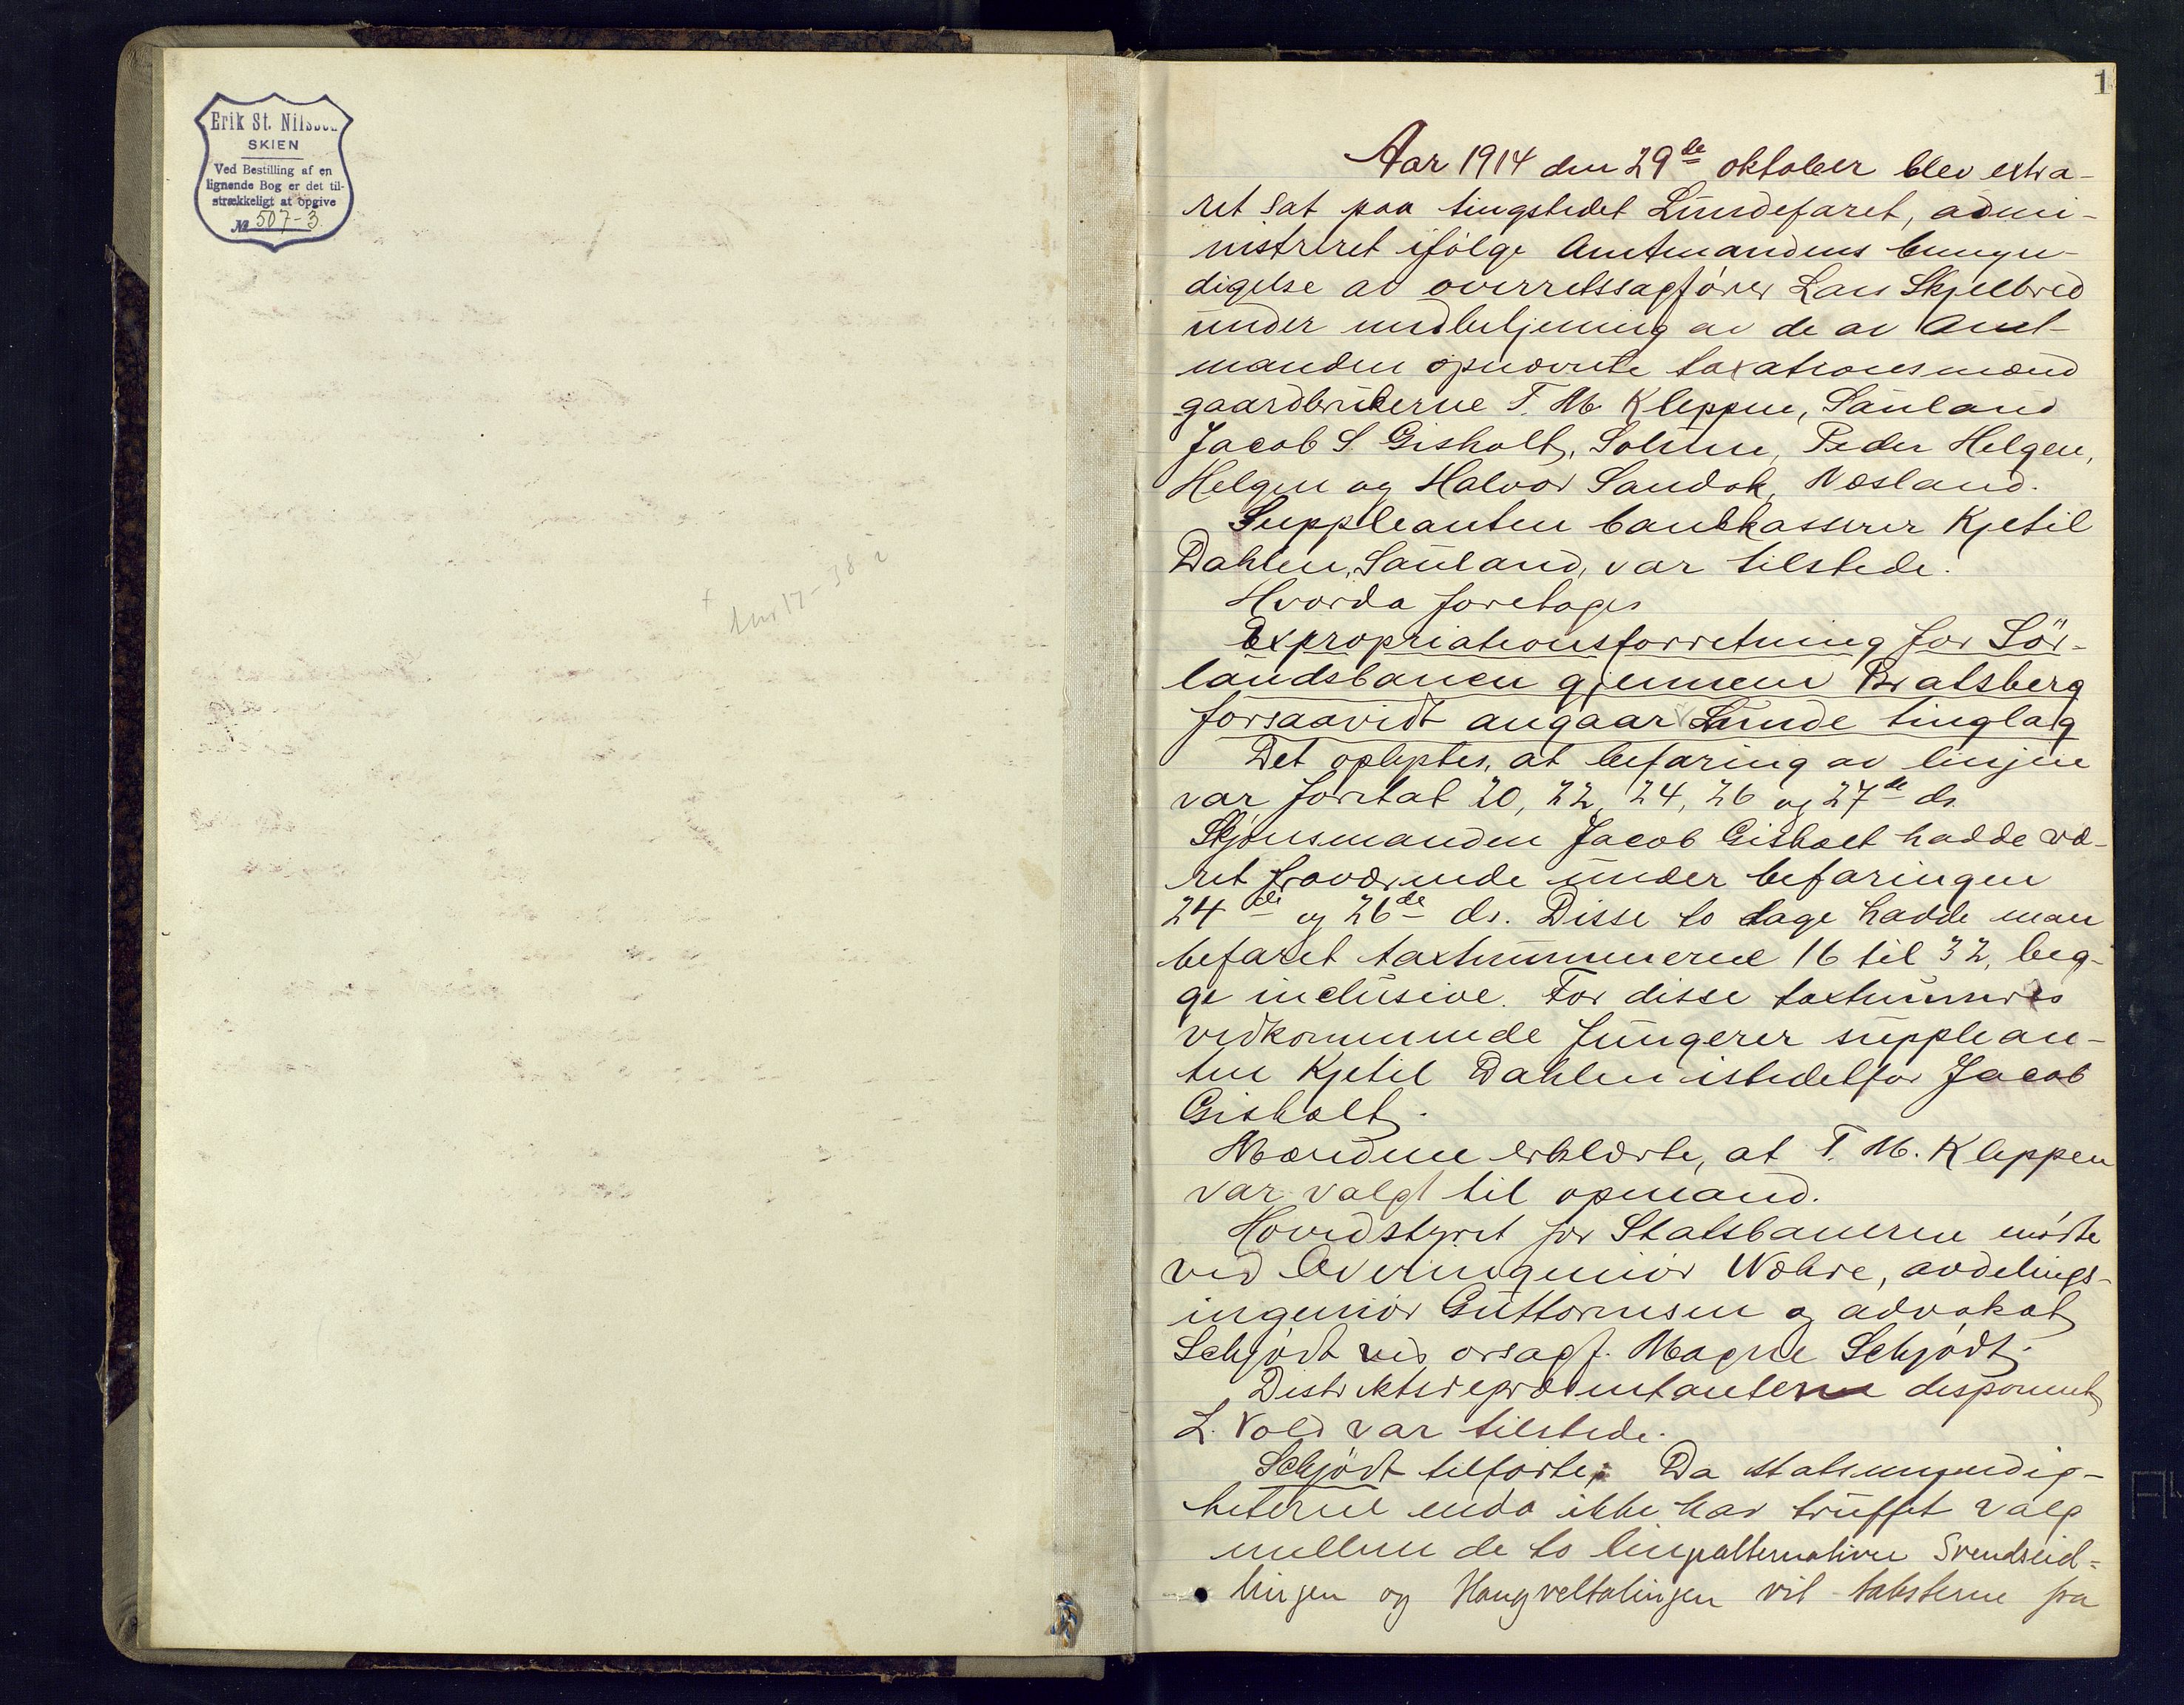 Erik St. Nilssen
SKIEN
Ved Bestilling af en
lignende Bog er det til-
strækkeligt at opgive
№ 507-3
1
Aar 1914 den 29de oktober blev extra-
ret sat paa tingstedet Lundefaret, admi-
nistreret ifølge Amtmandens bemyn-
digelse av overretssagfører Lars Skjelbred
under medbetjening av de av Amt-
manden opnævnte taxationsmænd
gaardbrukerne T. M. Kleppen, Sauland
Jacob S. Gisholt, Solum, Peder Helgen,
Helgen og Halvor Sandok, Næsland.
Suppleanten bankkasserer Kjetil
Dahlen, Sauland, var tilstede.
Hvorda foretoges
Expropriationsforretning for Sør-
landsbanen gjennem Bratsberg
forsaavidt angaar Lunde tinglag
Det oplystes, at befaring av linjen
var foretat 20, 22, 24, 26 og 27de ds.
Skjønsmanden Jacob Gisholt hadde væ-
ret fraværende under befaringen
24de og 26de ds. Disse to dage hadde man
befaret taxtnummerne 16 til 32, beg-
ge inclusive. For disse taxtnumres
vedkommende fungerer supplean-
ten Kjetil Dahlen istedetfor Jacob
Gisholt.
Mændene erklærte, at T. M. Kleppen
var valgt til opmand.
Hovedstyret for Statsbanerne mødte
ved Overingeniør Wæhre, avdelings-
ingeniør Guttormsen og advokat
Schjødt ved orsagf. Magne Schjødt.
Distriktsrepræsentanten disponent
L. Vold var tilstede.
Schjødt tilførte: Da statsmyndig-
heterne enda ikke har truffet valg
mellem de to linjealternativer Svendseid=
linjen og Haugveltalinjen vil taksterne fra